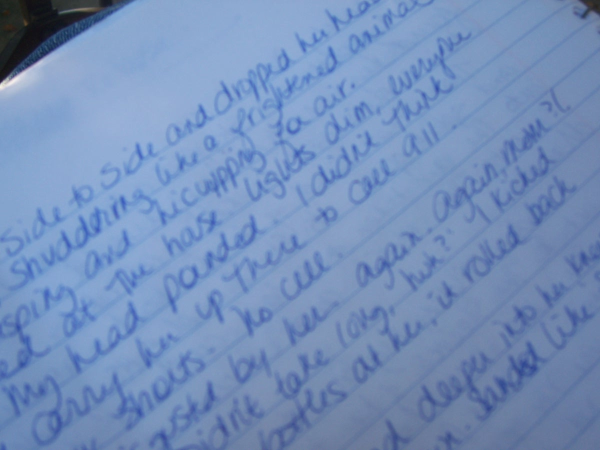 side to side and dropped her head
shuddering like a frightened animal
and hiccupping for air.
ed at the noise. lights dim, everyone
My head pounded. I didn't think
carry her up there to call 911.
shorts. No cell.
by her. again. again, mom?!
Didn't take long, huh? I kicked
bottles at her, it rolled back
deeper into her